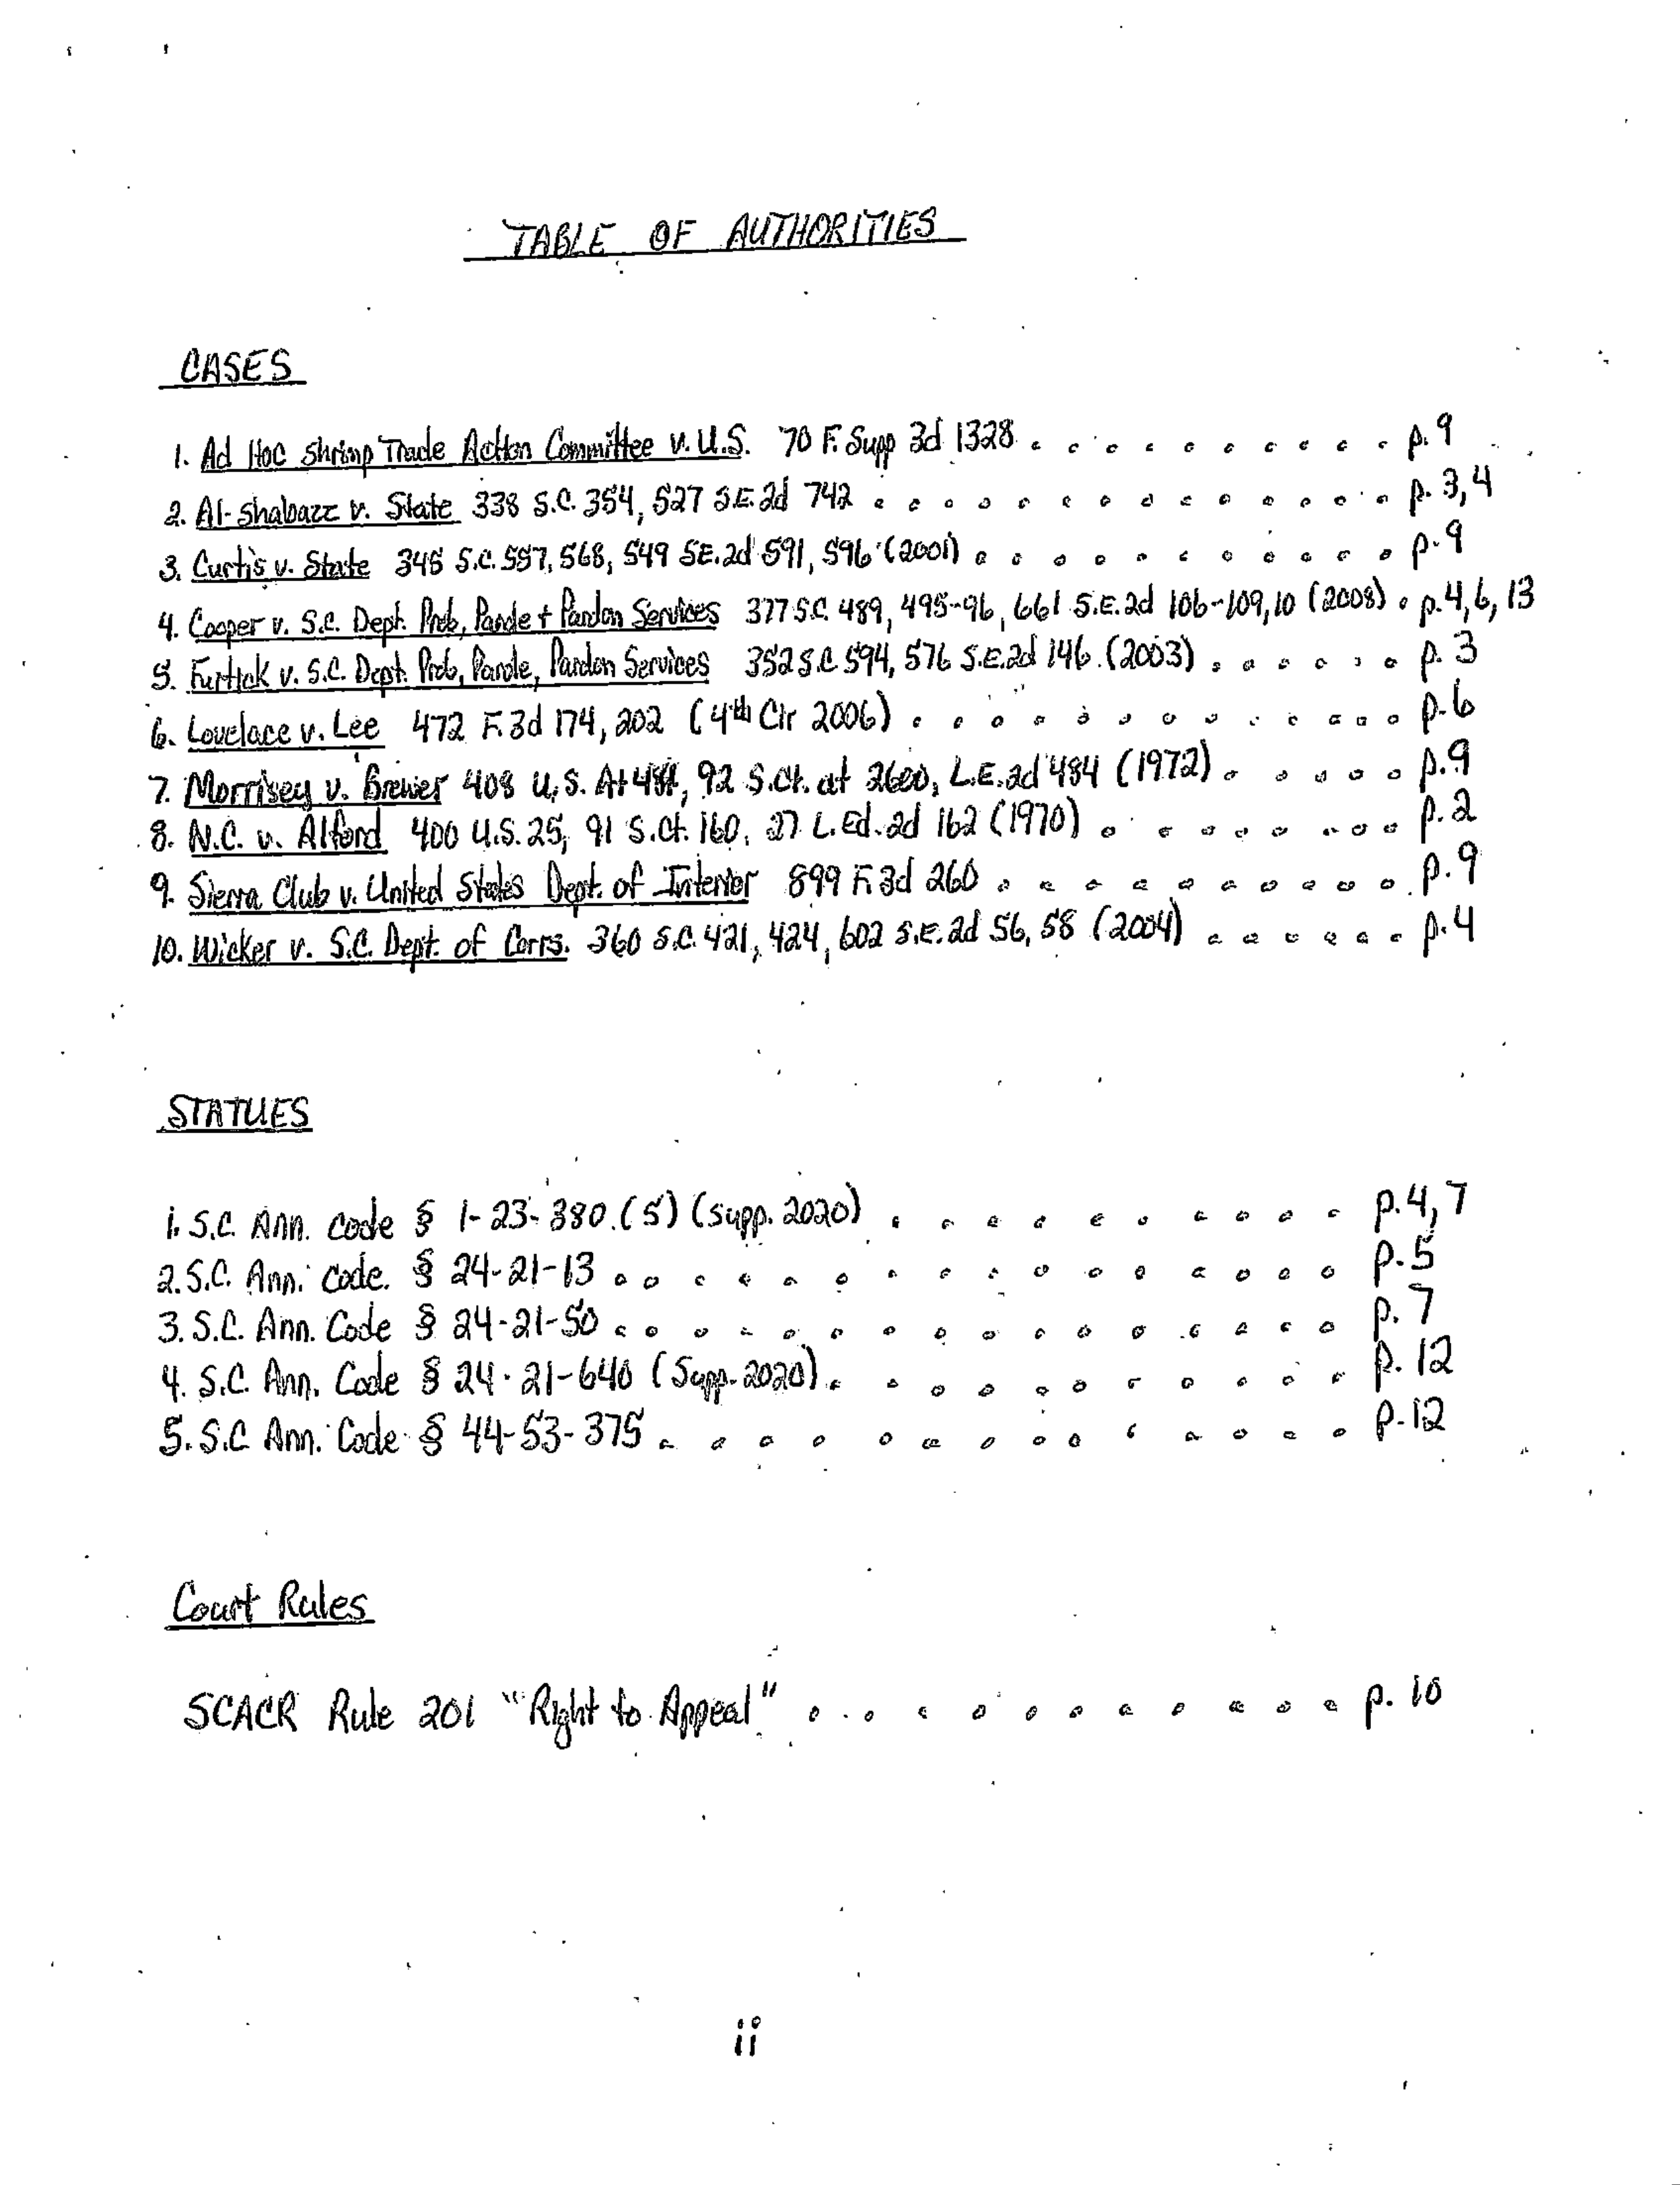 TABLE OF AUTHORITIES
CASES
1. Ad Hoc Shrimp Trade Action Committee v. U.S. 70 F. Supp 3d 1328 . . . . . . . . . . p. 9
2. Al-Shabazz v. State 338 S.C. 354, 527 S.E. 2d 742 . . . . . . . . . . . . . . p. 3, 4
3. Curtis v. State 345 S.C. 557, 568, 549 SE. 2d 591, 596 (2001) . . . . . . . . . . . p. 9
4. Cooper v. S.C. Dept. Prob, Parole + Pardon Services 377 S.C. 489, 495-96, 661 S.E. 2d 106-109, 10 (2008) . p. 4, 6, 13
5. Furtick v. S.C. Dept. Prob, Parole, Pardon Services 352 S.C 594, 576 S.E. 2d 146 (2003) . . . . . . p. 3
6. Lovelace v. Lee 472 F. 3d 174, 202 (4th Cir 2006) . . . . . . . . . . . . p. 6
7. Morrisey v. Brewer 408 U.S. At 484, 92 S.Ct. at 2600, L.E. 2d 484 (1972) . . . . . p. 9
8. N.C. v. Alford 400 U.S. 25, 91 S.Ct. 160, 27 L. Ed. 2d 162 (1970) . . . . . . . . p. 2
9. Sierra Club v. United States Dept. of Interior 899 F. 3d 260 . . . . . . . . . . p. 9
10. Wicker v. S.C. Dept. of Corrs. 360 S.C. 421, 424, 602 S.E. 2d 56, 58 (2004) . . . . . . p. 4
STATUES
1. S.C. Ann. Code § 1-23-380 (5) (Supp. 2020) . . . . . . . . . . p. 4, 7
2. S.C. Ann. Code. § 24-21-13 . . . . . . . . . . . . . . . p. 5
3. S.C. Ann. Code § 24-21-50 . . . . . . . . . . . . . . . p. 7
4. S.C. Ann. Code § 24-21-640 (Supp. 2020) . . . . . . . . . . p. 12
5. S.C Ann. Code § 44-53-375 . . . . . . . . . . . . . . p. 12
Court Rules
SCACR Rule 201 "Right to Appeal" . . . . . . . . . . . . p. 10
ii